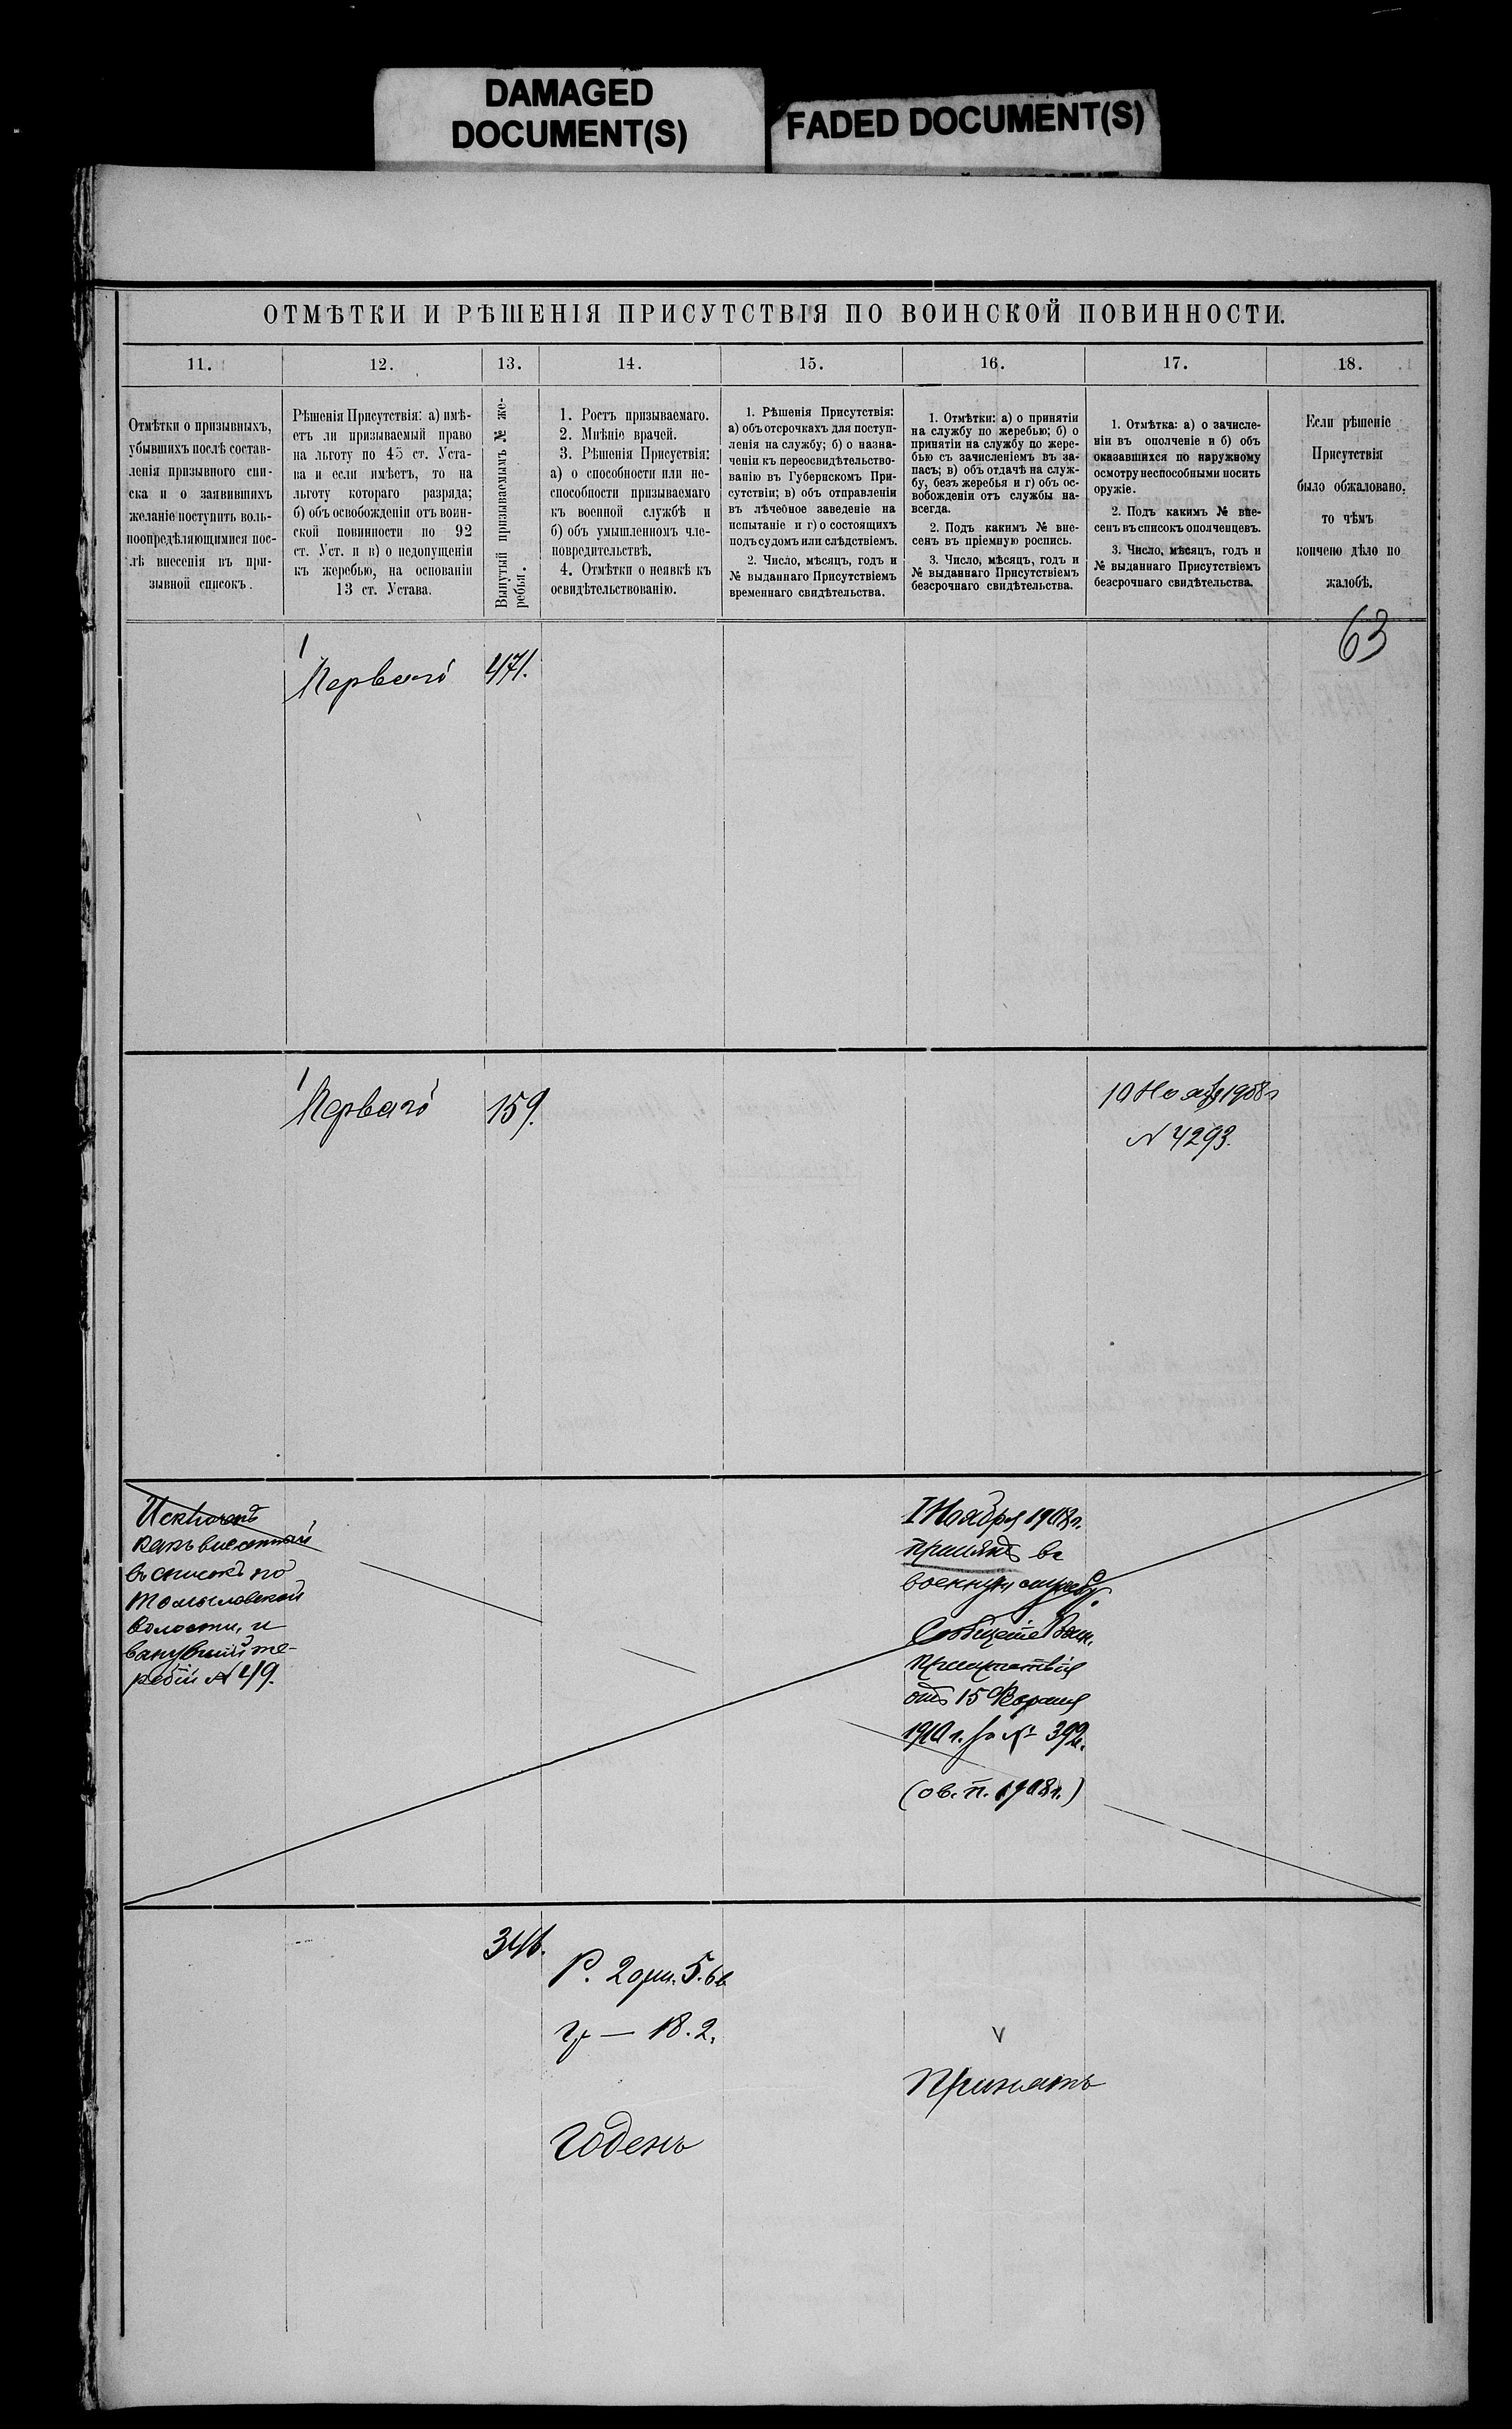 DAMAGED
DOCUMENT(S)
FADED DOCUMENT(S)
ОТМѢТКИ И РѢШЕНІЯ ПРИСУТСТВІЯ ПО ВОИНСКОЙ ПОВИННОСТИ.
11.
12.
13.
14.
15.
16.
17.
18.
Отмѣтки о призывныхъ,
убывшихъ послѣ состав-
ленія призывного спи-
ска и о заявившихъ
желаніе поступить воль-
ноопредѣляющимися пос-
лѣ внесенія въ при-
зывной списокъ.
Рѣшенія Присутствія: а) имѣ-
етъ ли призываемый право
на льготу по 45 ст. Уста-
ва и если имѣетъ, то на
льготу котораго разряда;
б) объ освобожденіи отъ воин-
ской повинности по 92
ст. Уст. и в) о недопущеніи
къ жеребью, на основаніи
13 ст. Устава.
Вынутый призываемымъ № же-
ребья.
1. Ростъ призываемаго.
2. Мнѣніе врачей.
3. Рѣшенія Присутствія:
а) о способности или не-
способности призываемаго
къ военной службѣ и
б) объ умышленномъ чле-
новредительствѣ.
4. Отмѣтки о неявкѣ къ
освидѣтельствованію.
1. Рѣшенія Присутствія:
а) объ отсрочкахъ для поступ-
ленія на службу; б) о назна-
ченіи къ переосвидѣтельство-
ванію въ Губернскомъ При-
сутствіи; в) объ отправленіи
въ лѣчебное заведеніе на
испытаніе и г) о состоящихъ
подъ судомъ или слѣдствіемъ.
2. Число, мѣсяцъ, годъ и
№ выданнаго Присутствіемъ
временнаго свидѣтельства.
1. Отмѣтки: а) о принятіи
на службу по жеребью; б) о
принятіи на службу по жере-
бью съ зачисленіемъ въ за-
пасъ; в) объ отдачѣ на служ-
бу, безъ жеребья и г) объ ос-
вобожденіи отъ службы на-
всегда.
2. Подъ какимъ № вне-
сенъ въ пріемную роспись.
3. Число, мѣсяцъ, годъ и
№ выданнаго Присутствіемъ
безсрочнаго свидѣтельства.
1. Отмѣтка: а) о зачисле-
ніи въ ополченіе и б) объ
оказавшихся по наружному
осмотру неспособными носить
оружіе.
2. Подъ какимъ № вне-
сенъ въ списокъ ополченцевъ.
3. Число, мѣсяцъ, годъ и
№ выданнаго Присутствіемъ
безсрочнаго свидѣтельства.
Если рѣшеніе
Присутствія
было обжаловано,
то чѣмъ
кончено дѣло по
жалобѣ.
63
1
Перваго 471.
1
Перваго 159.
10 Ноября 1908 г
N 4293.
Исключенъ
какъ внесенный
въ списокъ по
волости, и
вынувшій же-
ребій № 49.
1 Ноября 1908 г.
принятъ въ
военную службу.
Сообщеніе Воин.
присутствія
отъ 15 Февраля
1910 г. за № 392.
(ов. п. 1908 г.)
346.
Р. 2 арш. 5. 6 в
гр — 18. 2.
Годенъ
v
Принятъ